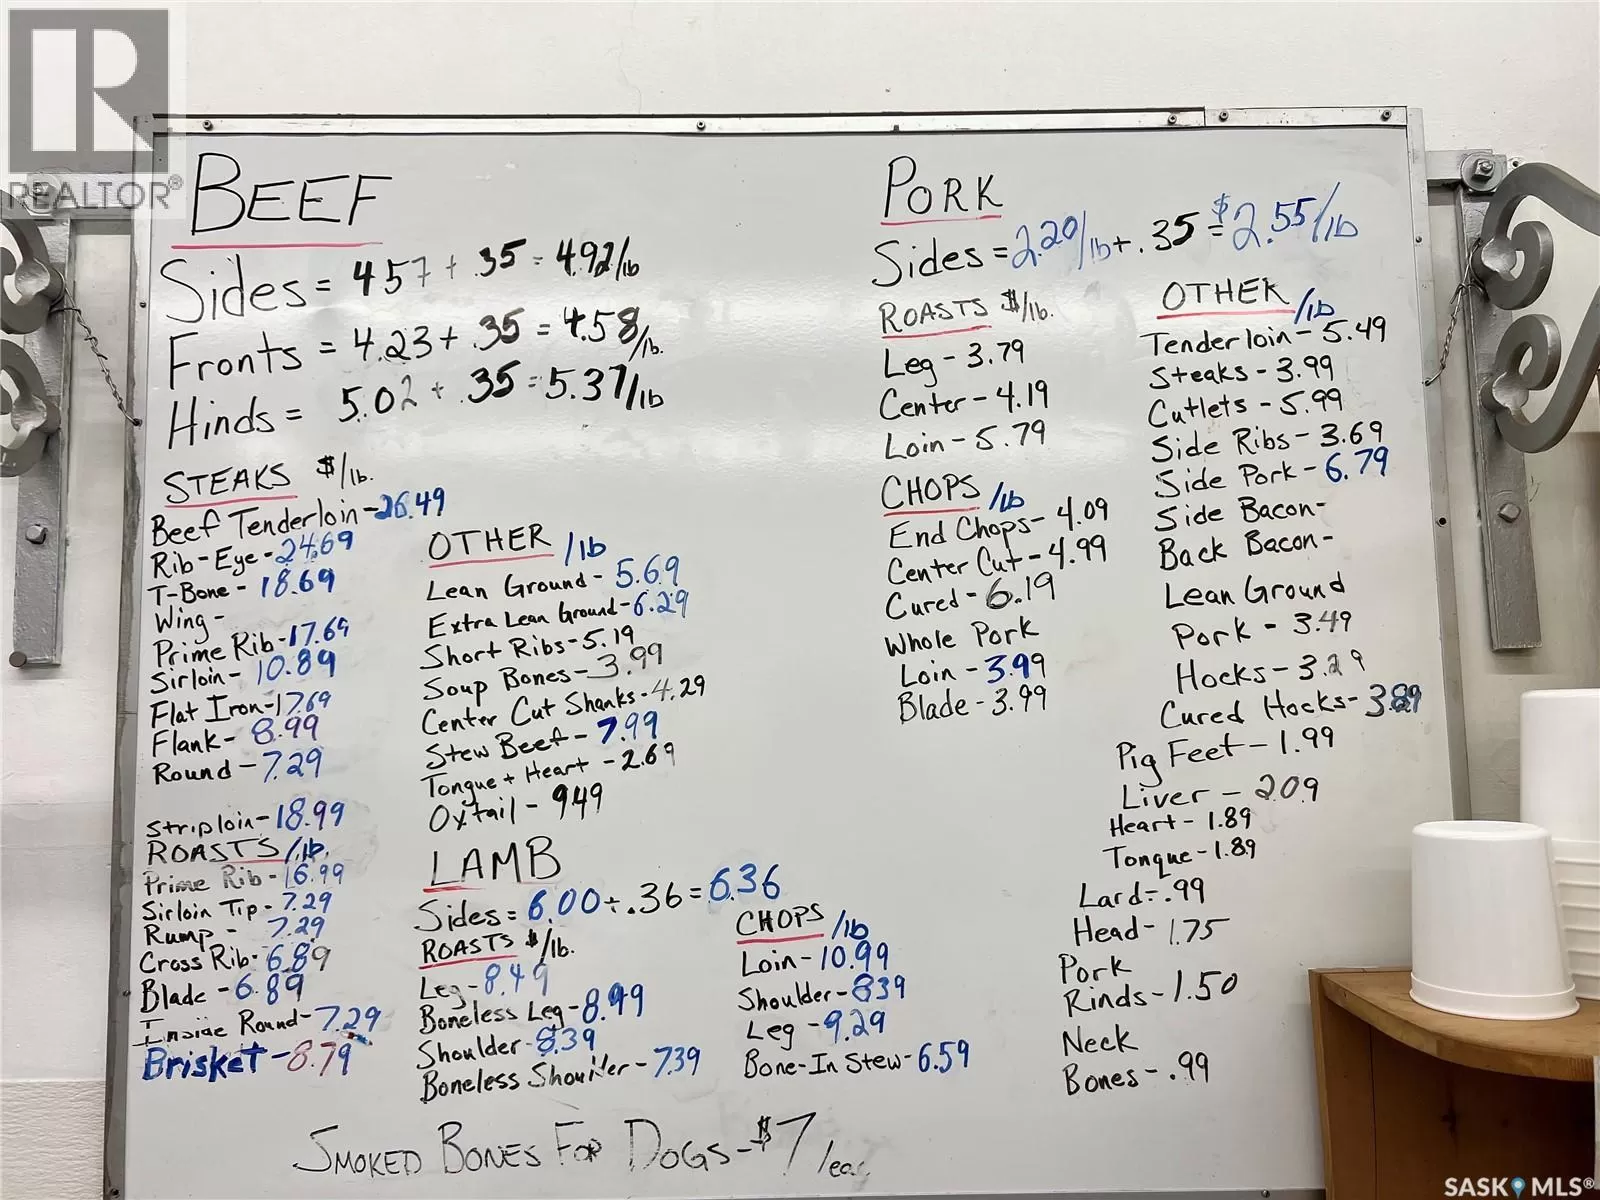 REALTOR®
BEEF
Sides = 4 57 + .35 = 4.92/lb
Fronts = 4.23 + .35 = 4.58/lb.
Hinds = 5.02 + .35 = 5.37/lb
STEAKS $/lb.
Beef Tenderloin - 26.49
Rib-Eye - 24.69
T-Bone - 18.69
Wing -
Prime Rib - 17.69
Sirloin - 10.89
Flat Iron - 17.69
Flank - 8.99
Round - 7.29
Striploin - 18.99
ROASTS /lb.
Prime Rib - 16.99
Sirloin Tip - 7.29
Rump - 7.29
Cross Rib - 6.89
Blade - 6.89
Inside Round - 7.29
Brisket - 8.79
OTHER /lb
Lean Ground - 5.69
Extra Lean Ground - 6.29
Short Ribs - 5.19
Soup Bones - 3.99
Center Cut Shanks - 4.29
Stew Beef - 7.99
Tongue + Heart - 2.69
Oxtail - 949
LAMB
Sides = 6.00 + .36 = 6.36
ROASTS $/lb.
Leg - 8.49
Boneless Leg - 8.99
Shoulder - 8.39
Boneless Shoulder - 7.39
CHOPS /lb
Loin - 10.99
Shoulder - 839
Leg - 9.29
Bone-In Stew - 6.59
PORK
Sides = 2.20/lb + .35 = $2.55/lb
ROASTS $/lb.
Leg - 3.79
Center - 4.19
Loin - 5.79
CHOPS /lb
End Chops - 4.09
Center Cut - 4.99
Cured - 6.19
Whole Pork
Loin - 3.99
Blade - 3.99
OTHER /lb
Tenderloin - 5.49
Steaks - 3.99
Cutlets - 5.99
Side Ribs - 3.69
Side Pork - 6.79
Side Bacon -
Back Bacon -
Lean Ground
Pork - 3.49
Hocks - 3.29
Cured Hocks - 3.89
Pig Feet - 1.99
Liver - 2.09
Heart - 1.89
Tongue - 1.89
Lard - .99
Head - 1.75
Pork
Rinds - 1.50
Neck
Bones - .99
SMOKED BONES FOR DOGS - $7
SASK MLS®